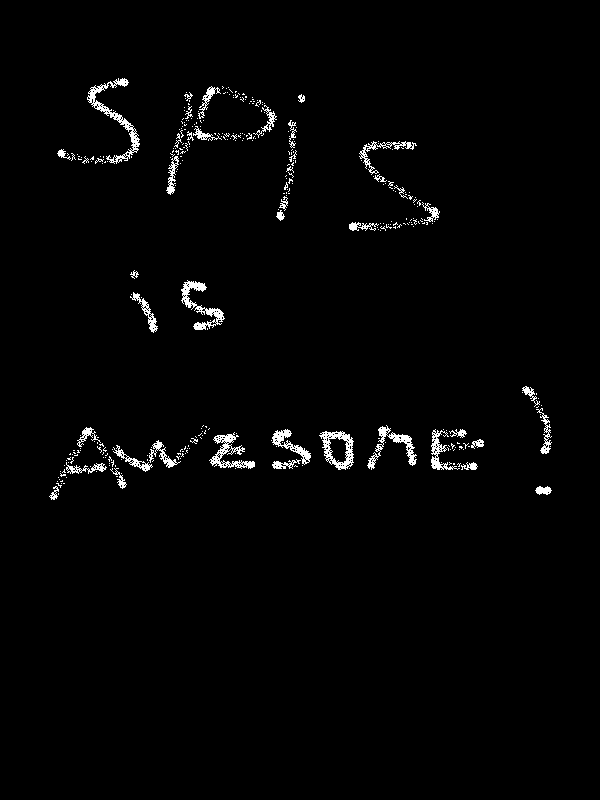 SPiS
is
AWESOME!